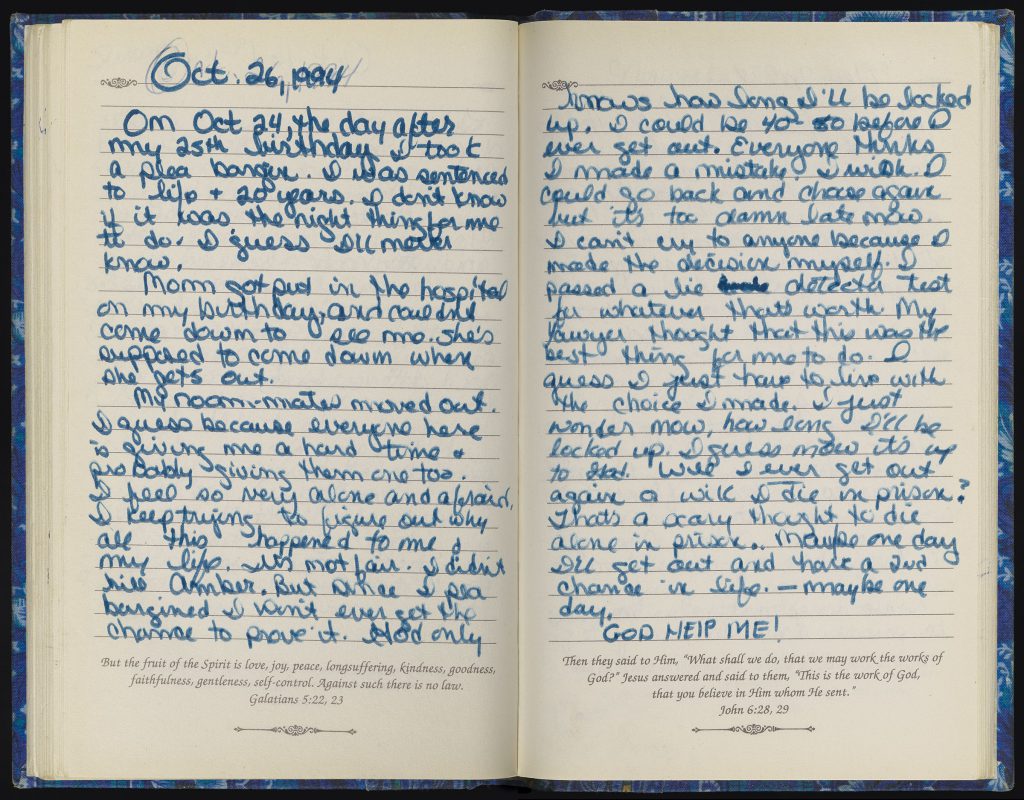 Oct. 26, 1994
On Oct 24, the day after
my 25th birthday I took
a plea bargin. I was sentenced
to life + 20 years. I don't know
if it was the right thing for me
to do. I guess I'll never
know.
Mom got put in the hospital
on my birthday, and couldn't
come down to see me. She's
supposed to come down when
she gets out.
My room-mates moved out.
I guess because everyone here
is giving me a hard time &
probably giving them one too.
I feel so very alone and afraid,
I keep trying to figure out why
all this happened to me &
my life. It's not fair. I didn't
kill Amber. But since I plea
bargined I won't ever get the
chance to prove it. God only
knows how long I'll be locked
up. I could be 40- 50 before I
ever get out. Everyone thinks
I made a mistake? I wish I
could go back and chose again
but it's too damn late now.
I can't cry to anyone because I
made the decision myself. I
passed a lie detector test
for whatever thats worth. My
lawyer thought that this was the
best thing for me to do. I
guess I just have to live with
the choice I made. I just
wonder now, how long I'll be
locked up. I guess now it's up
to God. Will I ever get out
again or will I die in prison?
Thats a scary thought to die
alone in prison.. Maybe one day
I'll get out and have a 2nd
chance in life. — maybe one
day.
GOD HELP ME!
But the fruit of the Spirit is love, joy, peace, longsuffering, kindness, goodness,
faithfulness, gentleness, self-control. Against such there is no law.
Galatians 5:22, 23
Then they said to Him, "What shall we do, that we may work the works of
God?" Jesus answered and said to them, "This is the work of God,
that you believe in Him whom He sent."
John 6:28, 29